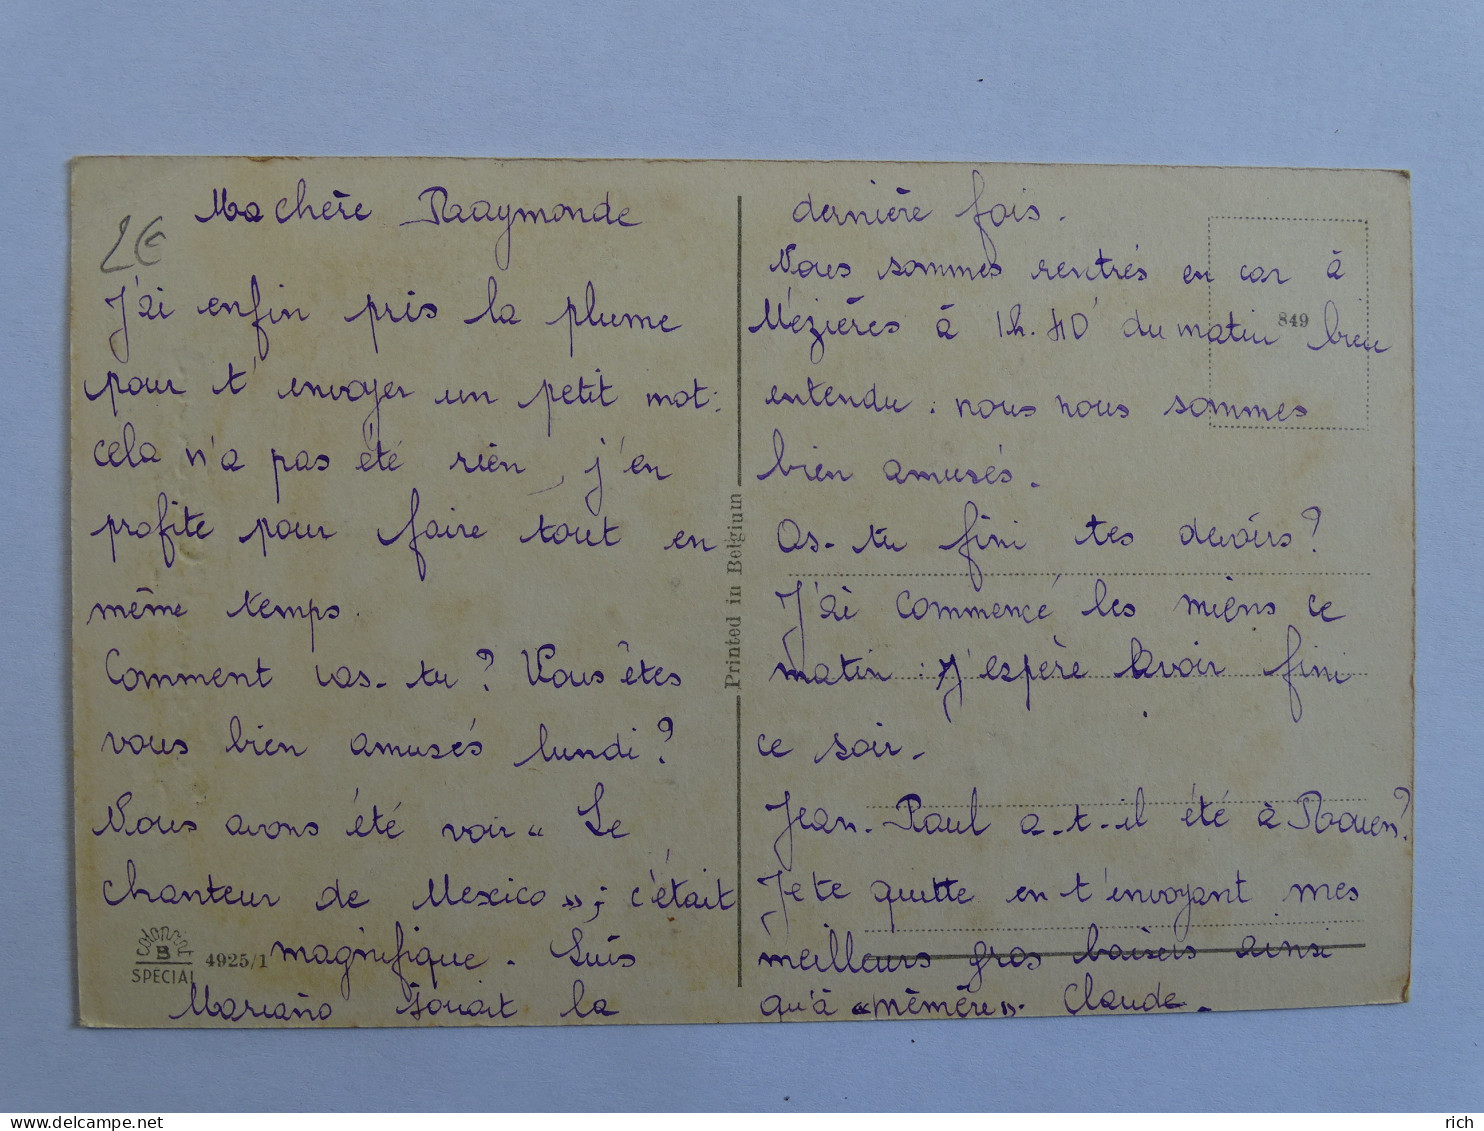 2€
Ma chère Raymonde
J'ai enfin pris la plume
pour t'envoyer un petit mot :
cela n'a pas été rien, j'en
profite pour faire tout en
même temps.
Comment vas-tu ? Vous êtes
vous bien amusés lundi ?
Nous avons été voir « Le
chanteur de Mexico » ; c'était
magnifique. Luis
Mariano jouait la
Colorprint
B
SPECIAL
4925/1
Printed in Belgium
dernière fois.
Nous sommes rentrés en car à
Mézières à 1h.40' du matin bien
849
entendu : nous nous sommes
bien amusés.
As-tu fini tes devoirs ?
J'ai commencé les miens ce
matin : j'espère avoir fini
ce soir.
Jean-Paul a-t-il été à Rouen ?
Je te quitte en t'envoyant mes
meilleurs gros baisers ainsi
qu'à « mémère ». Claude.
rich